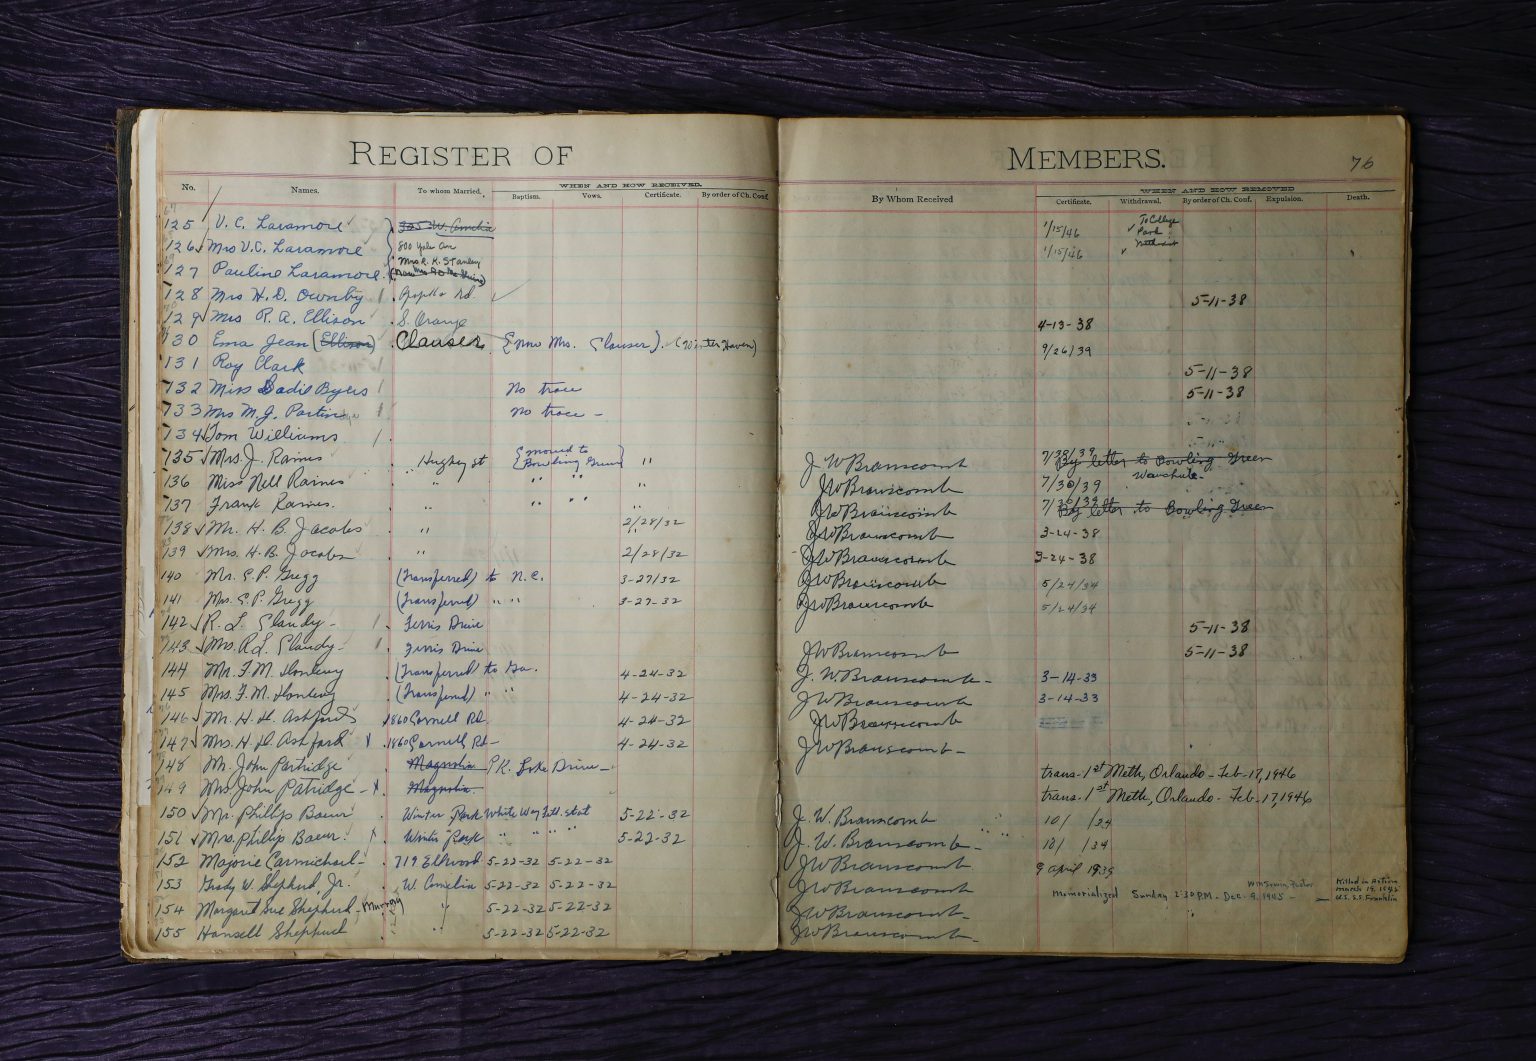 REGISTER OF MEMBERS. 76
No. Names. To whom Married. WHEN AND HOW RECEIVED. By Whom Received WHEN AND HOW REMOVED
Baptism. Vows. Certificate. By order of Ch. Conf. Certificate. Withdrawal. By order of Ch. Conf. Expulsion. Death.
125 V. C. Laramore 325 W. Amelia 1/15/46 To College Park
126 Mrs V. C. Laramore 800 Yale Ave 1/15/46
127 Pauline Laramore Mrs R. K. Stanley
128 Mrs H. D. Ownby Apopka Rd. 5-11-38
129 Mrs R. A. Ellison S. Orange 4-13-38
130 Ema Jean (Ellison) Clauser (now Mrs. Clauser). (Winter Haven) 9/26/39
131 Roy Clark 5-11-38
132 Miss Sadie Byers No trace 5-11-38
133 Mrs M. J. No trace -
134 Tom Williams
135 Mrs. J. Raines Hughey st moved to Bowling Green " J W Branscomb 7/30/39 By letter to Bowling Green
136 Miss Nell Raines " " " " JW Branscomb 7/30/39 Wauchula-
137 Frank Raines. " " " " JW Branscomb 7/30/39 By letter to Bowling Green
138 Mr. H. B. Jacobs " 2/28/32 JW Branscomb 3-24-38
139 Mrs. H. B. Jacobs " 2/28/32 JW Branscomb 3-24-38
140 Mr. E. P. Gregg (Transferred) to N.C. 3-27/32 JW Branscomb 5/24/34
141 Mrs. E. P. Gregg (Transferred) " " 3-27-32 JW Branscomb 5/24/34
142 R. L. Clandy- Ferris Drive 5-11-38
143 Mrs. R L. Clandy- Ferris Drive JW Branscomb 5-11-38
144 Mr. F. M. (Transferred to Ga. 4-24-32 J. W. Branscomb- 3-14-33
145 Mrs. F. M. (Transferred) " " 4-24-32 JW Branscomb 3-14-33
146 Mr. H. H. Ashford 1860 Cornell Rd. 4-24-32 JW Branscomb
147 Mrs. H. H. Ashford 1860 Cornell Rd- 4-24-32 JW Branscomb-
148 Mr. John Partridge Magnolia Pk. Lake Drive- trans- 1st Meth, Orlando- Feb-17, 1946
149 Mrs John Patridge- Magnolia- trans- 1st Meth, Orlando- Feb-17, 1946
150 Mr. Phillip Baeur Winter Park White Way 5-22-32 J. W. Branscomb 10/ /34
151 Mrs. Phillip Baeur. Winter Park " " " " 5-22-32 J. W. Branscomb- 10/ /34
152 Majorie Carmichael- 719 Ellwood 5-22-32 5-22-32 JW Branscomb 9 April 1935
153 Grady W. Shepherd, Jr. W. Comelia 5-22-32 5-22-32 JW Branscomb Memorialized Sunday 2:30 P.M. - Dec. 9, 1945 - Wm Erwin, Pastor Killed in Action March 19, 1945 U.S.S. Franklin
154 Margaret Sue Shepherd- Murray " 5-22-32 5-22-32 JW Branscomb-
155 Hansell Shepherd " 5-22-32 5-22-32 JW Branscomb-